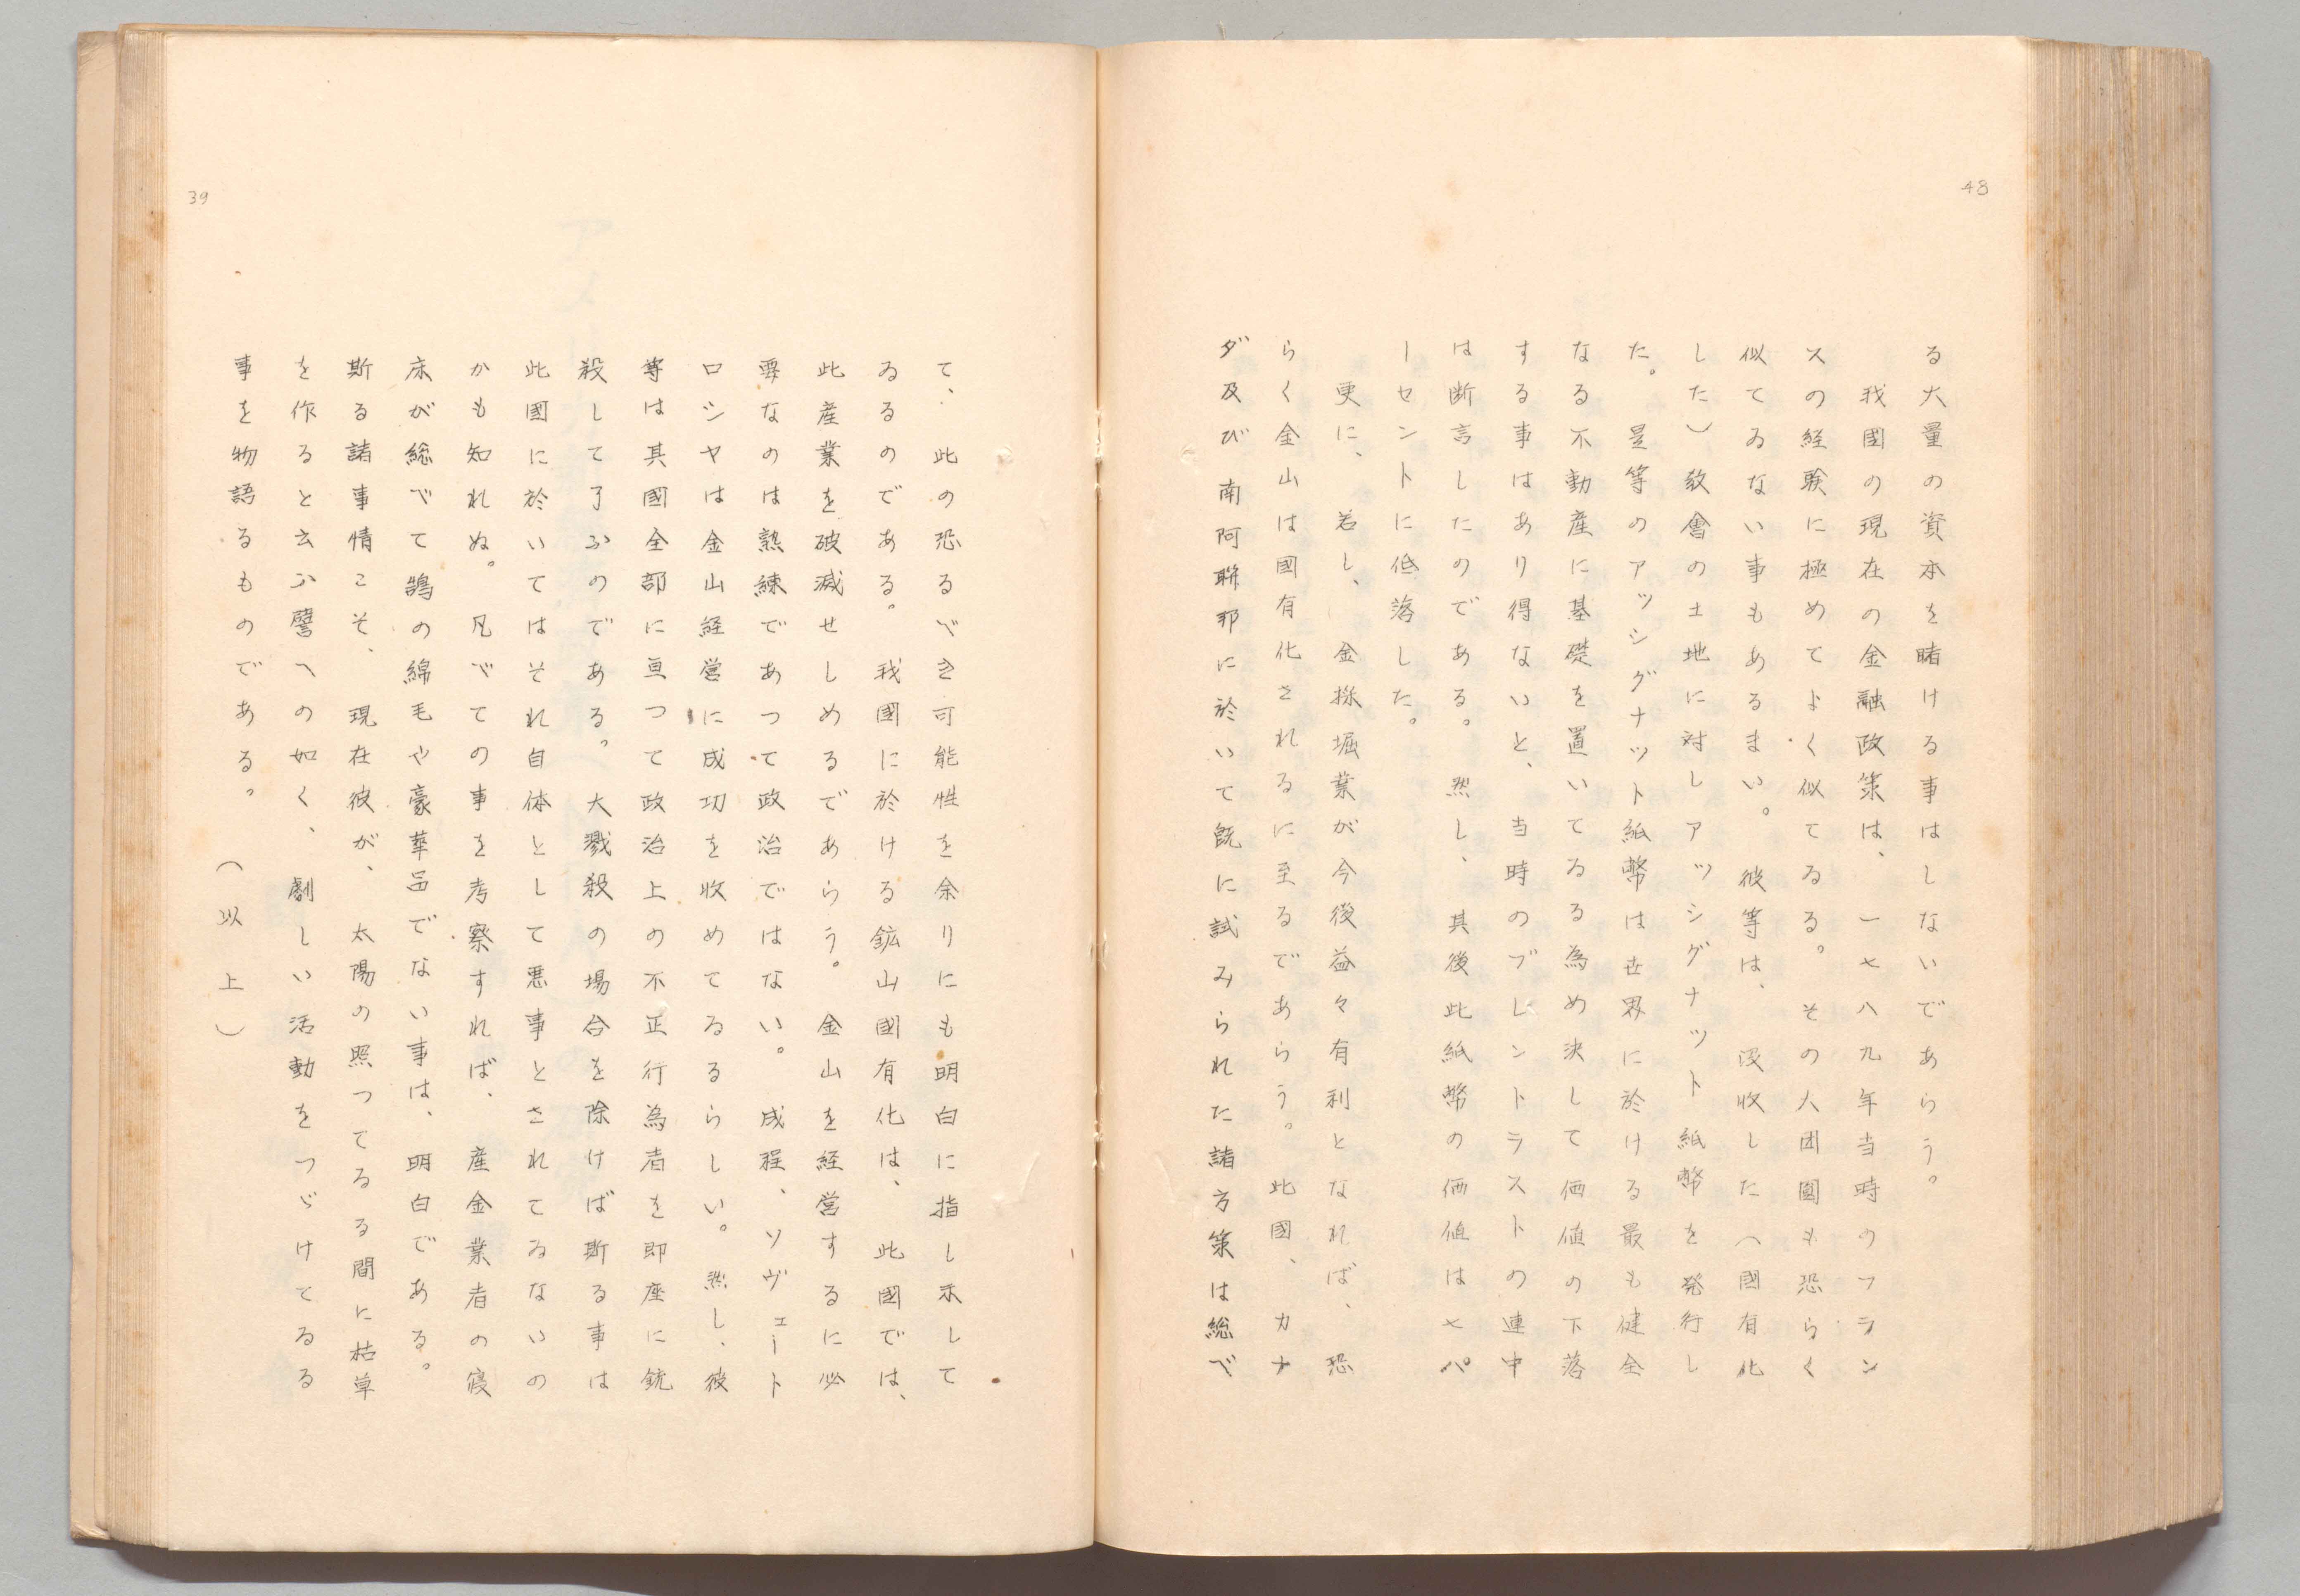 48
る大量の資本を賭ける事はしないであらう。
我國の現在の金融政策は、一七八九年当時のフラン
スの経験に極めてよく似てゐる。その人団圓も恐らく
似てゐない事もあるまい。彼等は、没収した（國有化
した）敎會の土地に対しアッシグナット紙幣を発行し
た。是等のアッシグナット紙幣は世界に於ける最も健全
なる不動産に基礎を置いてゐる為め決して価値の下落
する事はあり得ないと、当時のブレントラストの連中
は断言したのである。然し、其後此紙幣の価値は七パ
ーセントに低落した。
更に、若し、金採堀業が今後益々有利となれば、恐
らく金山は國有化されるに至るであらう。此國、カナ
ダ及び南阿聯邦に於いて既に試みられた諸方策は総べ
て、此の恐るべき可能性を余りにも明白に指し示して
ゐるのである。我國に於ける鉱山國有化は、此國では、
此産業を破滅せしめるであらう。金山を経営するに必
要なのは熟練であつて政治ではない。成程、ソヴェート
ロシヤは金山経営に成功を收めてゐるらしい。然し、彼
等は其國全部に亘つて政治上の不正行為者を即座に銃
殺して了ふのである。大戮殺の場合を除けば斯る事は
此國に於いてはそれ自体として悪事とされてゐないの
かも知れぬ。凡べての事を考察すれば、産金業者の寝
床が総べて鵠の綿毛や豪華なでない事は、明白である。
斯る諸事情こそ、現在彼が、太陽の照つてゐる間に枯草
を作ると云ふ譬への如く、劇しい活動をつゞけてゐる
事を物語るものである。
（以上）
39